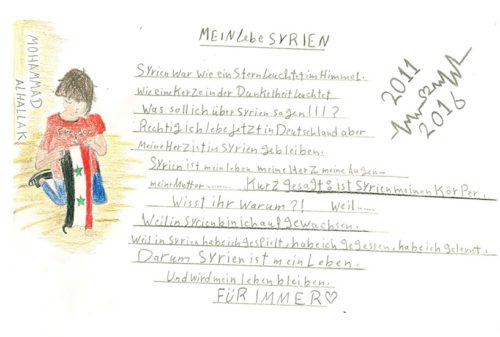 MEIN lebe SYRIEN
MOHAMMAD
ALHALLAK
2011
2016
Syrien war wie ein Stern Leuchtet im Himmel.
Wie ein Kerze in der Dunkelheit Leuchtet
Was soll ich über Syrien sagen!!!?
Rechtig ich lebe jetzt in Deutschland aber
Meine Herz ist in Syrien gebleiben.
Syrien ist mein leben meine Herz meine Augen-
meine Mutter........ Kurz gesagt: ist Syrien meinen Körper.
Wisst ihr Warum?! Weil......
Weil in Syrien bin ich aufgewachsen.
Weil in Syrien habe ich gespielt, habe ich gegessen, habe ich gelernt.
Darum Syrien ist mein Leben.
Und wird mein leben bleiben.
FÜR IMMER♡